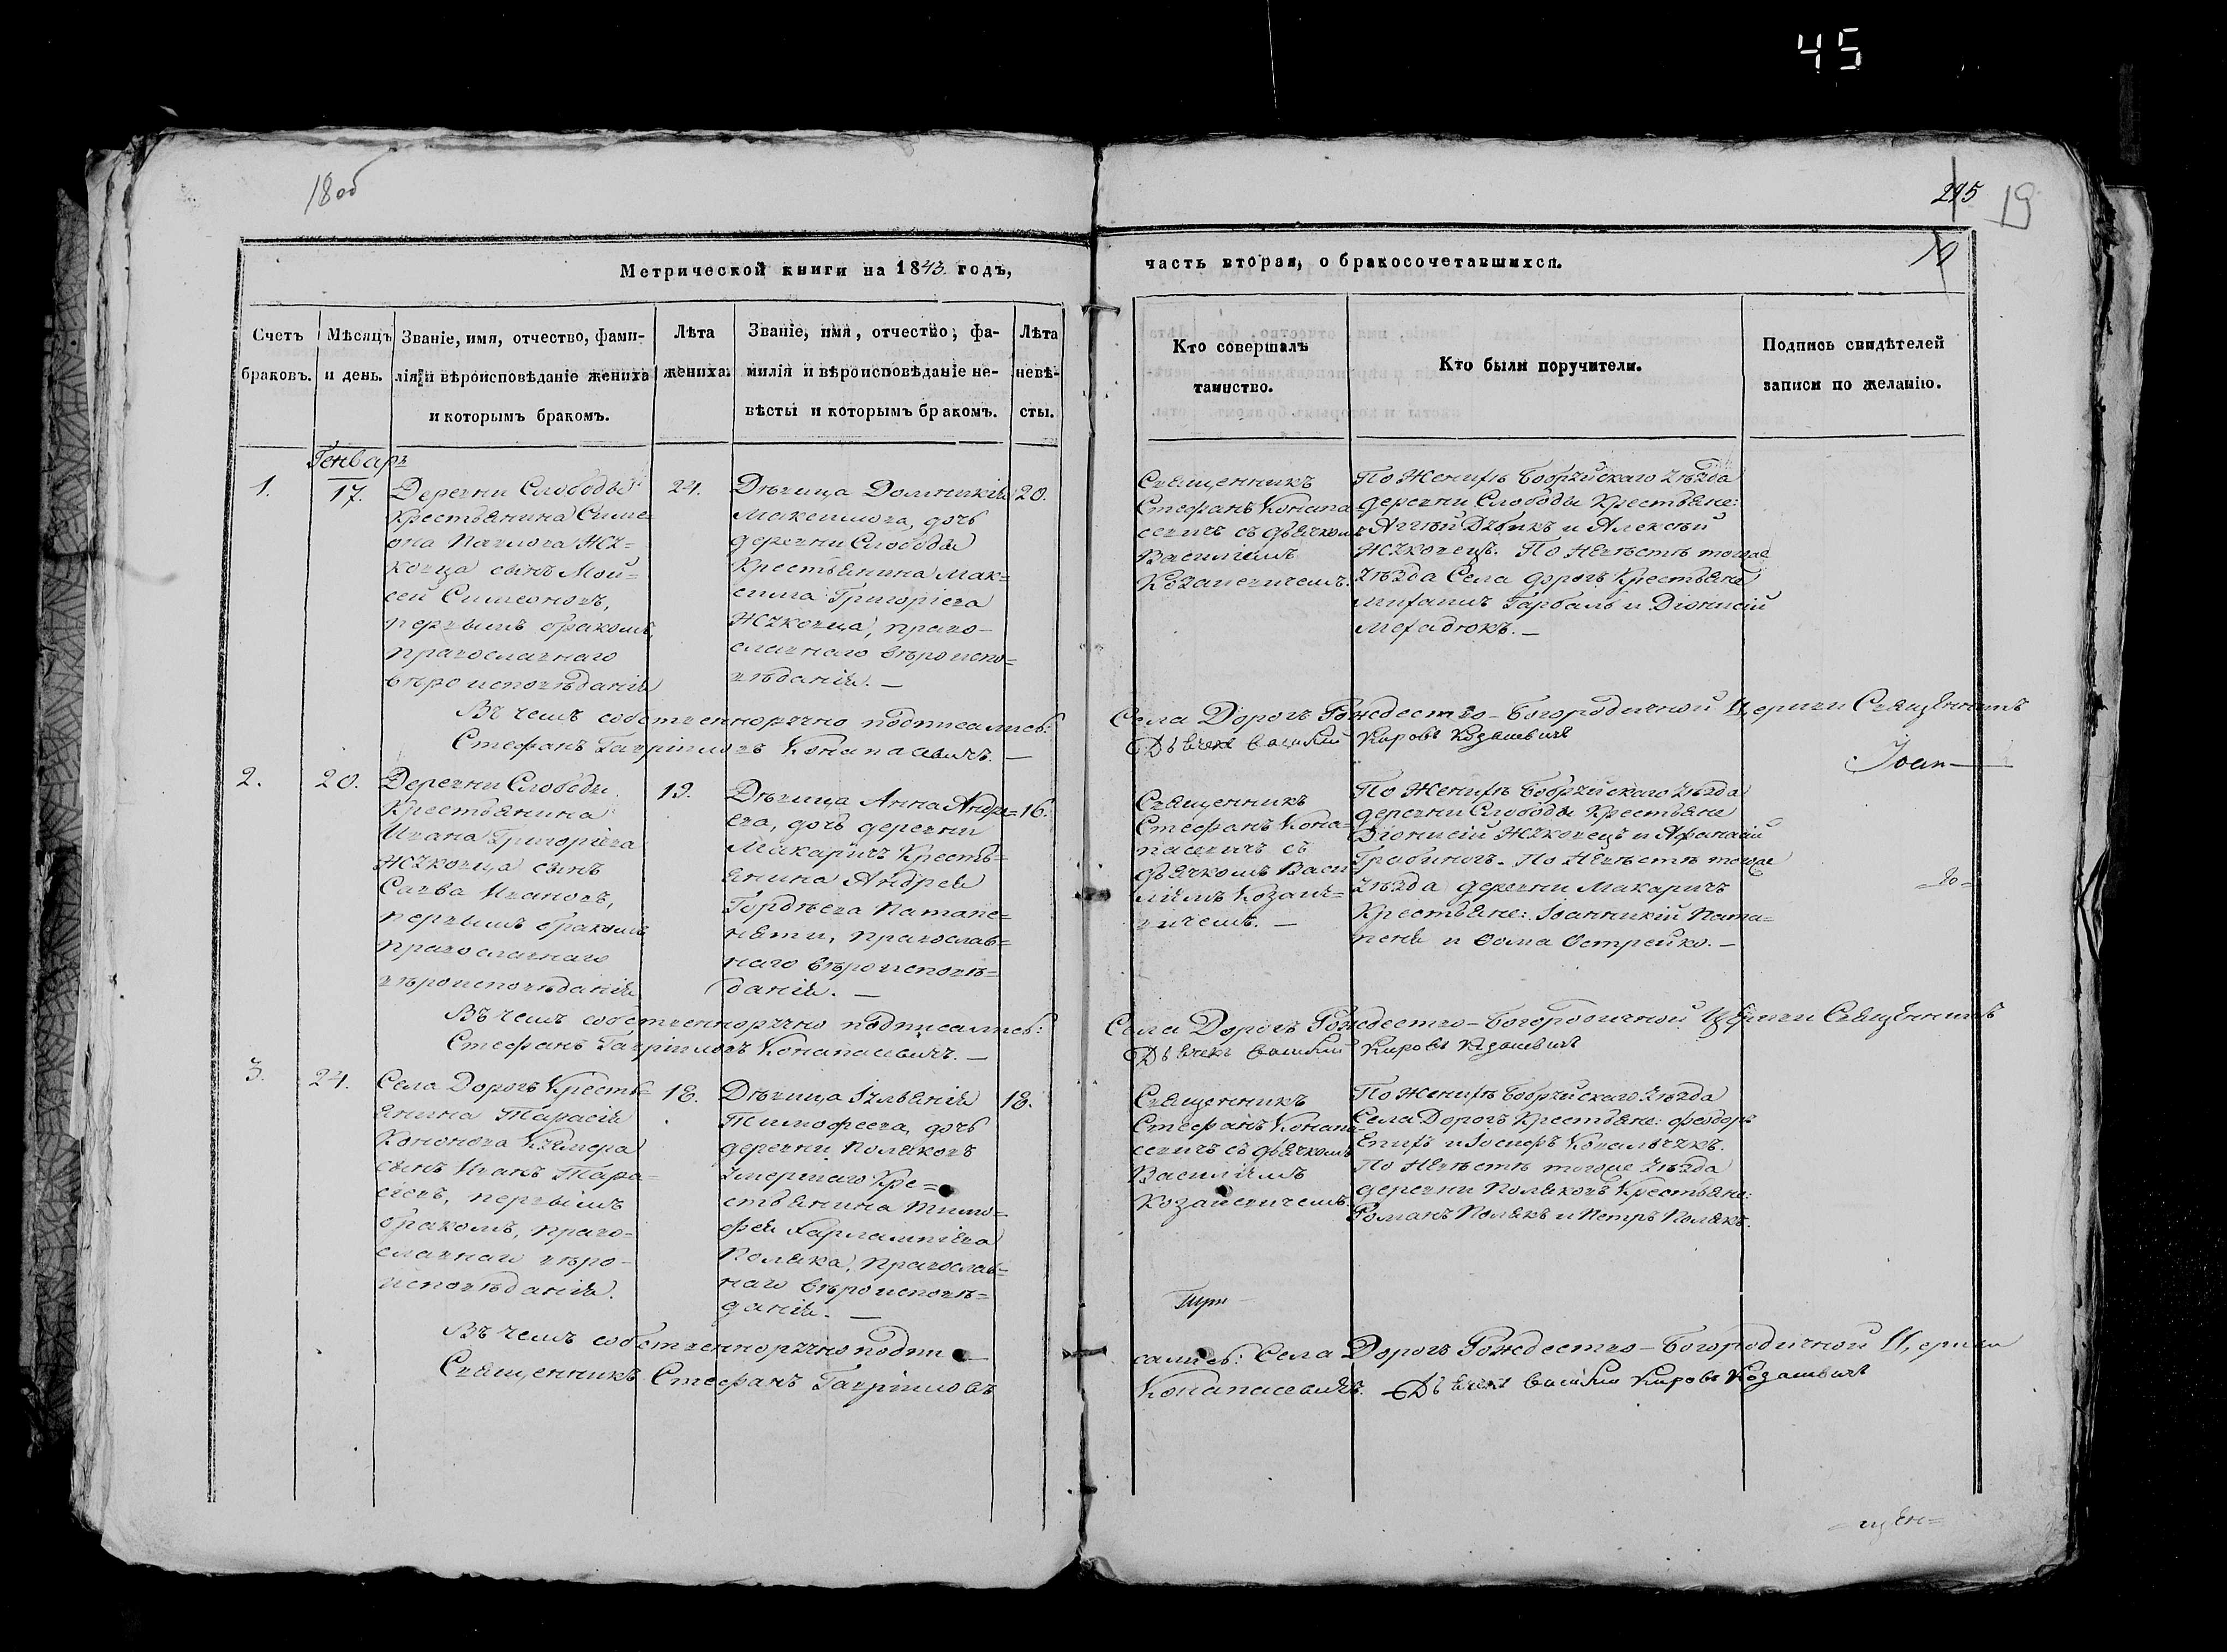 45
18 об
215
19
Метрической книги на 1843. годъ,
часть вторая, о бракосочетавшихся.
Счетъ браковъ.
Мѣсяцъ и день.
Званіе, имя, отчество, фами-
лія и вѣроисповѣданіе жениха
и которымъ бракомъ.
Лѣта
жениха.
Званіе, имя, отчество, фа-
милія и вѣроисповѣданіе не-
вѣсты и которымъ бракомъ.
Лѣта
невѣ-
сты.
Кто совершалъ
таинство.
Кто были поручители.
Подпись свидѣтелей
записи по желанію.
Генваръ
1.
17.
Деревни Слободы
Крестьянина Симе-
она Павлова Жу-
ковца сынъ Мой-
сей Симеоновъ,
первымъ бракомъ
православнаго
вѣроисповѣданія
24.
Дѣвица Домникія
Максимова, дочь
деревни Слободы
Крестьянина Мак=
сима Григоріева
Жуковца, право-
славнаго вѣроиспо=
вѣданія. —
20.
Священникъ
Стефанъ Конапа
севичъ съ дьячкомъ
Василіемъ
Козакевичемъ.
По Женихѣ Бобруйскаго уѣзда
деревни Слободы Крестьяне:
Аггѣй Дубикъ и Алексѣй
Жуковецъ. По Невѣстѣ тогоже
уѣзда Села Дорогъ Крестьяне
Митфанъ Гарбаль и Діонисій
Мефадюкъ. —
Въ чемъ собственноручно подписались: Села Дорогъ Рождество-Богородичной Церкви Священникъ
Стефанъ Гавріиловъ Конапасевичъ. — Дьячекъ Василий Кировъ Козакевичъ
Іоан—
2.
20.
Деревни Слободы
Крестьянина
Ивана Григоріева
Жуковца сынъ
Савва Ивановъ,
первымъ бракомъ
православнаго
вѣроисповѣданія
19.
Дѣвица Анна Андре=
ева, дочь деревни
Макаричъ Кресть=
янина Андрея
Гордѣева Патапе=
няти, православ=
наго вѣроисповѣ=
данія. —
16.
Священникъ
Стефанъ Кона-
пасевичъ съ
дьячкомъ Васи
ліемъ Козаке=
вичемъ. —
По Женихѣ Бобруйскаго уѣзда
деревни Слободы Крестьяне
Діонисій Жуковецъ и Афанасій
Грабиновъ. По Невѣстѣ тогоже
уѣзда деревни Макаричъ
Крестьяне: Іоанникій Пата=
пеня и Ѳома Острейко. —
Въ чемъ собственноручно подписались: Села Дорогъ Рождество-Богородичной Церкви Священникъ
Стефанъ Гавріиловъ Конапасевичъ. — Дьячекъ Василий Кировъ Козакевичъ
3.
24.
Села Дорогъ Кресть=
янина Тарасія
Кононова Кучмера
сынъ Исакъ Тара-
сіевъ, первымъ
бракомъ, право=
славнаго вѣро-
исповѣданія.
18.
Дѣвица Іуліанія
Тимофеева, дочь
деревни Поляковъ
умершаго Кре=
стьянина Тимо=
фея Харлампіева
Поляка, православ=
наго вѣроисповѣ=
данія. —
18.
Священникъ
Стефанъ Конапа-
севичъ съ дьячкомъ
Василіемъ
Козакевичемъ.
По Женихѣ Бобруйскаго уѣзда
Села Дорогъ Крестьяне: Феодоръ
Епихъ и Іосифъ Ковальчукъ.
По Невѣстѣ тогоже уѣзда
деревни Поляковъ Крестьяне:
Романъ Полякъ и Петръ Полякъ.
Въ чемъ собственноручно подпи—
сались: Села Дорогъ Рождество-Богородичной Церкви
Священникъ Стефанъ Гавріиловъ Конапасевичъ. — Дьячекъ Василий Кировъ Козакевичъ
— щен=